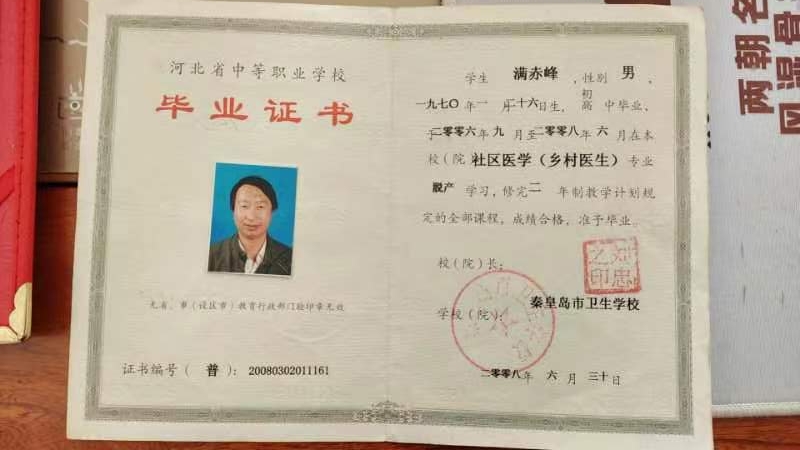 河北省中等职业学校
毕业证书
无省、市（设区市）教育行政部门验印章无效
证书编号（ 普 ）：20080302011161
学生 满赤峰 ，性别 男 ，
一九七〇年一 月二十六日生，初 高 中毕业，
于二零零六年九 月至二零零八年 六 月在本
校（院 社区医学（乡村医生）专业
脱产 学习，修完二 年制教学计划规
定的全部课程，成绩合格，准予毕业。
校（院）长：
之印
忠
学校（院）：
秦皇岛市卫生学校
二零零八年 六 月 三十日
两朝名
风湿骨